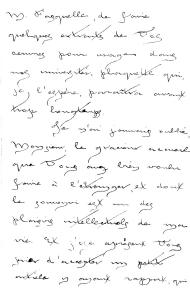 M. Fasquelle, de faire
quelques extraits de Vos
oeuvres pour usages dans
nos universités, plaquette qui,
je l'espère, paraîtra avant
trop longtemps.
Je n'ai jamais oublié,
Monsieur, le gracieux accueil
que Vous avez bien voulu
faire à l'étranger et dont
le souvenir est un des
plaisirs intellectuels de ma
vie. Et j'ose à présent Vous
prier d'accepter un petit
article y ayant rapport, qui